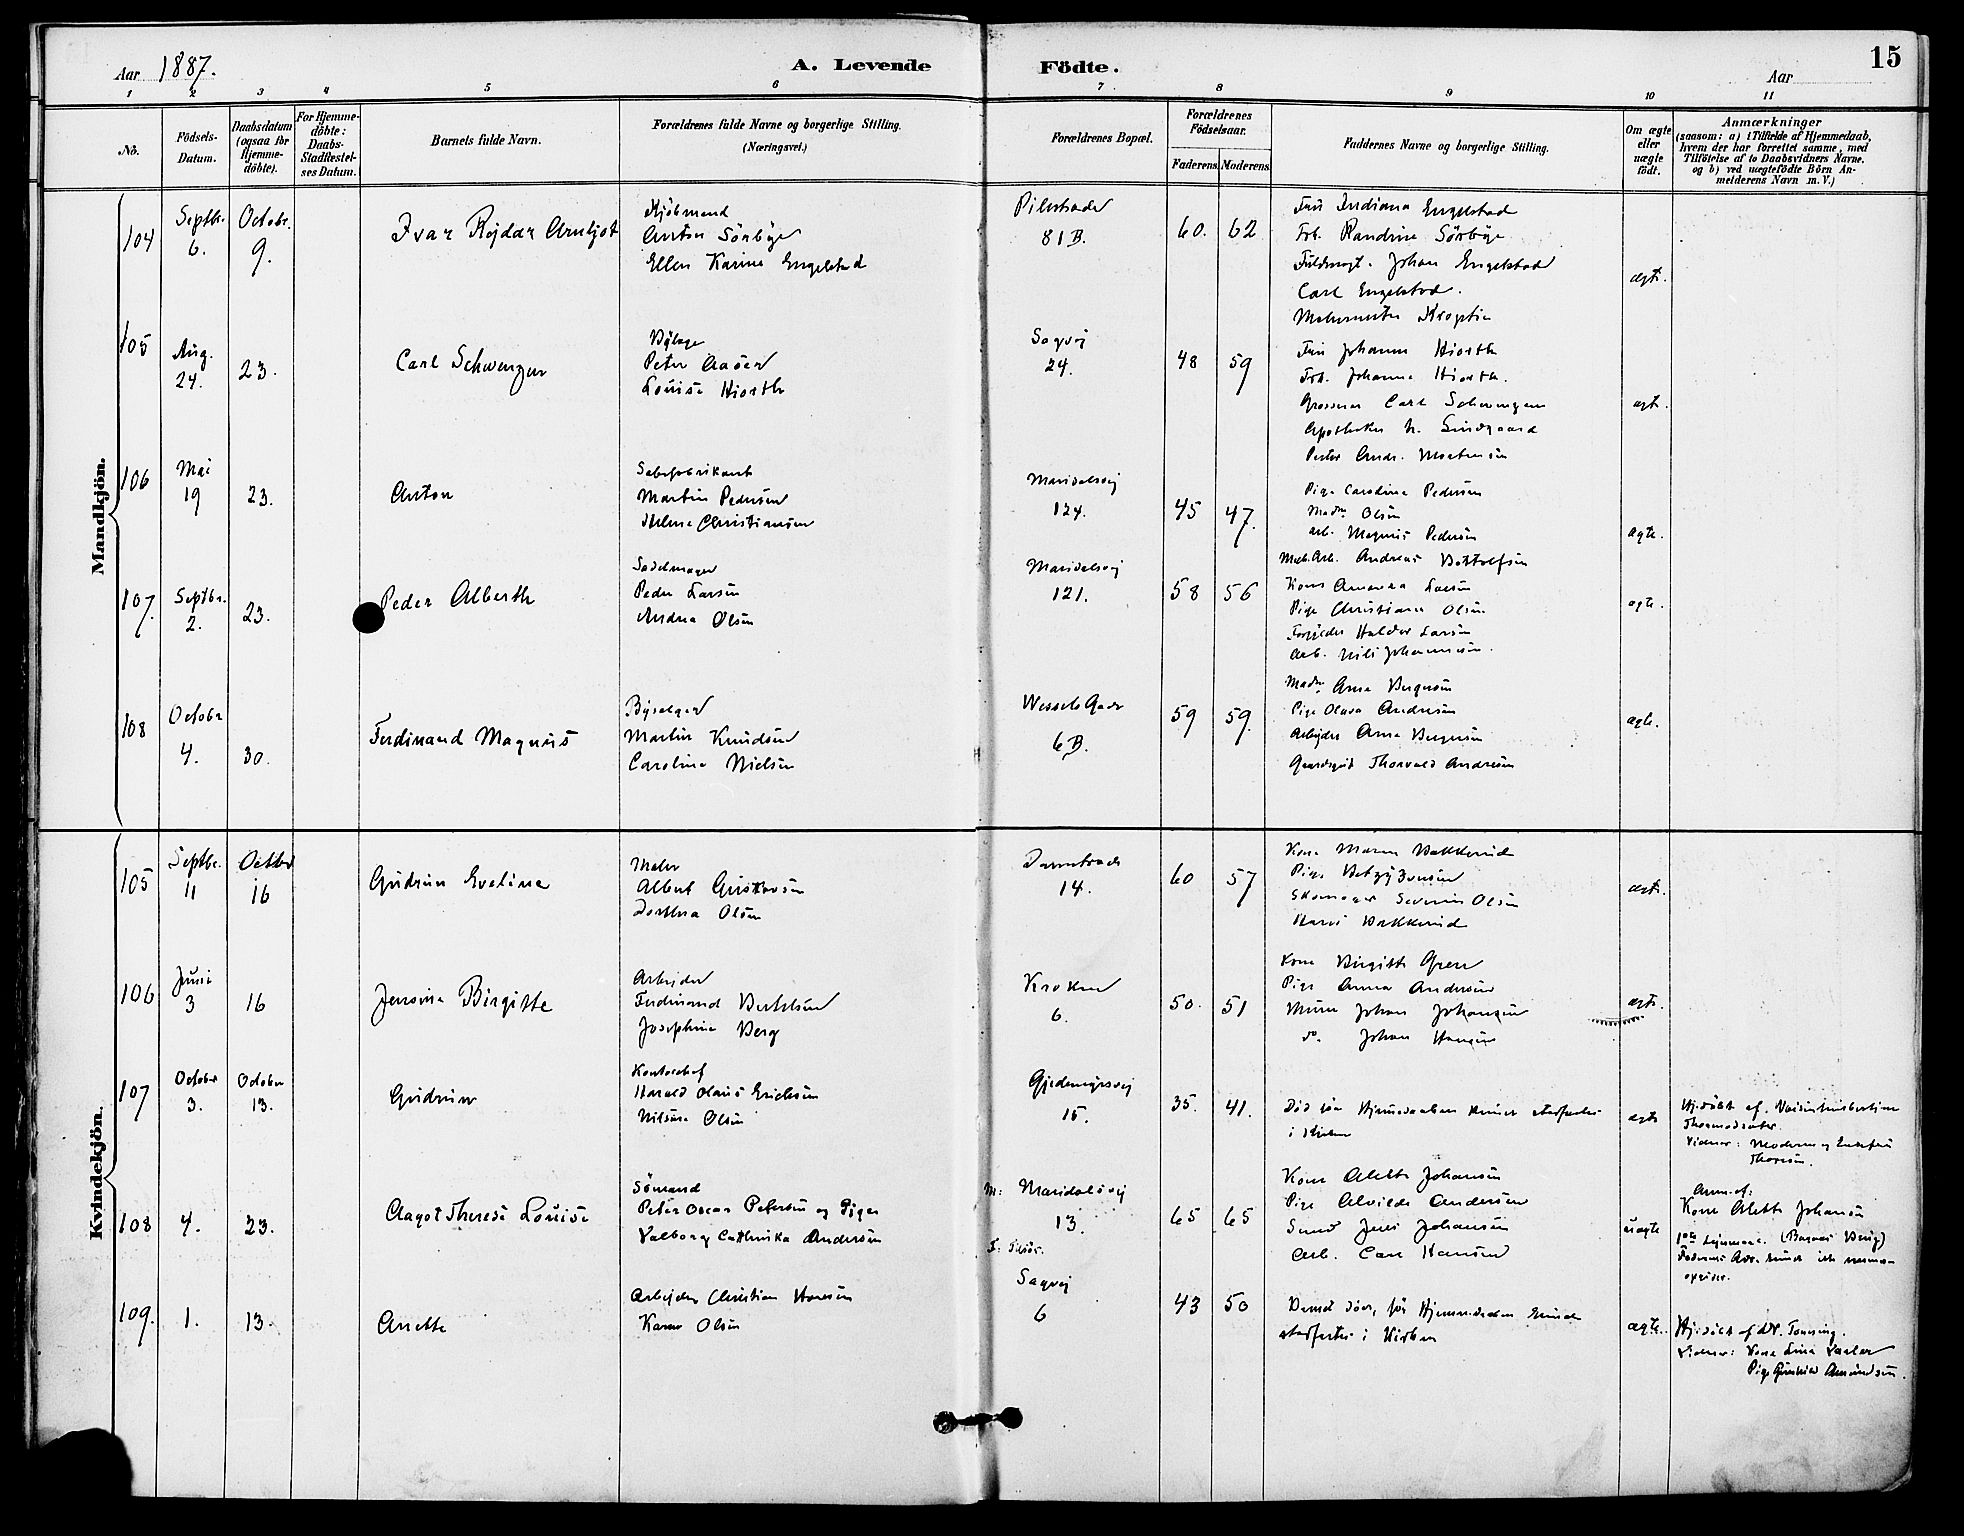 Aar 1887.
A. Levende Födte.
Aar
15
1 2 3 4 5 6 7 8 9 10 11
No.
Födsels-Datum.
Daabsdatum (ogsaa for Hjemme-döbte).
For Hjemme-döbte: Daabs-Stadfæstel-ses Datum.
Barnets fulde Navn.
Forældrenes fulde Navne og borgerlige Stilling. (Næringsvei.)
Forældrenes Bopæl.
Forældrenes Födselsaar.
Faderens. Moderens.
Faddernes Navne og borgerlige Stilling.
Om ægte eller uægte födt.
Anmærkninger
(saasom: a) i Tilfælde af Hjemmedaab, hvem der har forrettet samme, med Tilföielse af to Daabsvidners Navne. og b) ved uægtefödte Börn An-melderens Navn m. V.)
Mandkjön.
104 Septbr. 6. Octobr. 9. Ivar Rejdar Arnljot
Kjöbmand
Anton Sörbye
Ellen Karine Engelstad
Pilestrædet
81 B.
60. 62
Fru Indiana Engelstad
Frk. Randine Sörbye.
Fuldmægt. Johan Engelstad
Carl Engelstad.
ægt.
105 Aug. 24. 23. Carl Schwenzen
Peter Aasen
Louise Hiorth
Sagvej
24.
48 59
Fru Johanne Hiorth
Frk. Johanne Hiorth.
Grosserer Carl Schwenzen
Apotheker N. Lindgaard
ægt.
106 Mai 19 23. Anton
Sæbefabrikant
Martin Pedersen
Helene Christiansen
Maridalsvej
124.
45 47.
Pige Caroline Pedersen
Madm Olsen
Arb. Magnus Pedersen
ægte.
107. Septbr. 2. 23. Peder Alberth
Sadelmager
Peder Larsen
Andrea Olsen
Maridalsvej
121.
58 56
Kone Amanda Larsen
Pige Christiane Olsen
Forgylder Halvdor Larsen
Arb. Nils Johannesen.
ægte.
108 Octobr 4. 30. Ferdinand Magnus
Martin Knudsen
Caroline Nielsen
Wessels Gade
6 B.
59 59.
Madm Anna Bergersen
Pige Olava Andresen
Arbejder Arne Bergersen
Gaardsgut Thorvald Andresen
ægte.
Kvindekjön.
105 Septbr. 11 Octbr 16 Gudrun Eveline
Maler
Albert Gustavsen
Dorthea Olsen
14.
60 57
Kone Maren Bakkerud
Pige Betzy Jensen
Skomager Severin Olsen
Hans Bakkerud
ægt.
106 Juni 3 16 Jensine Birgitte
Arbejder
Ferdinand Bertelsen
Josephine Berg
Kroken
6.
50. 51
Kone Birgitte Green
Pige Anna Andersen
Murer Johan Johansen
do. Johan Hansen
ægt.
107 October 3. October 13. Gudrun
Harald Olaus Ericksen
Nilsine Olsen
Gjedemyrsvej
15.
35. 41.
Död för Hjemmedaaben kunde stadfæstes
i Kirken
ægte
Hj.döbt af
Vidner: Moderen og
Thoresen.
108 4. 23. Aagot Therese Louise
Sömand
Peter Oscar Petersen og Pige
Valborg Cathinka Andersen
M: Maridalsvej
13.
65 65
Kone Alette Johansen
Pige Alvilde Andersen
Smed Jens Johansen
Arb. Carl Hansen
uægte
Anm. af:
Kone Alette Johansen
109. 1. 13. Anette
Arbejder Christian Hansen
Karen Olsen
Sagvej
6
43 50
Barnet döde, för Hjemmedaaben kunde
stadfæstes i Kirken
ægte.
Hj.döbt af Dr. Tönsing.
Vidner: Kone Lina
Pige Gunhild Amundsen.